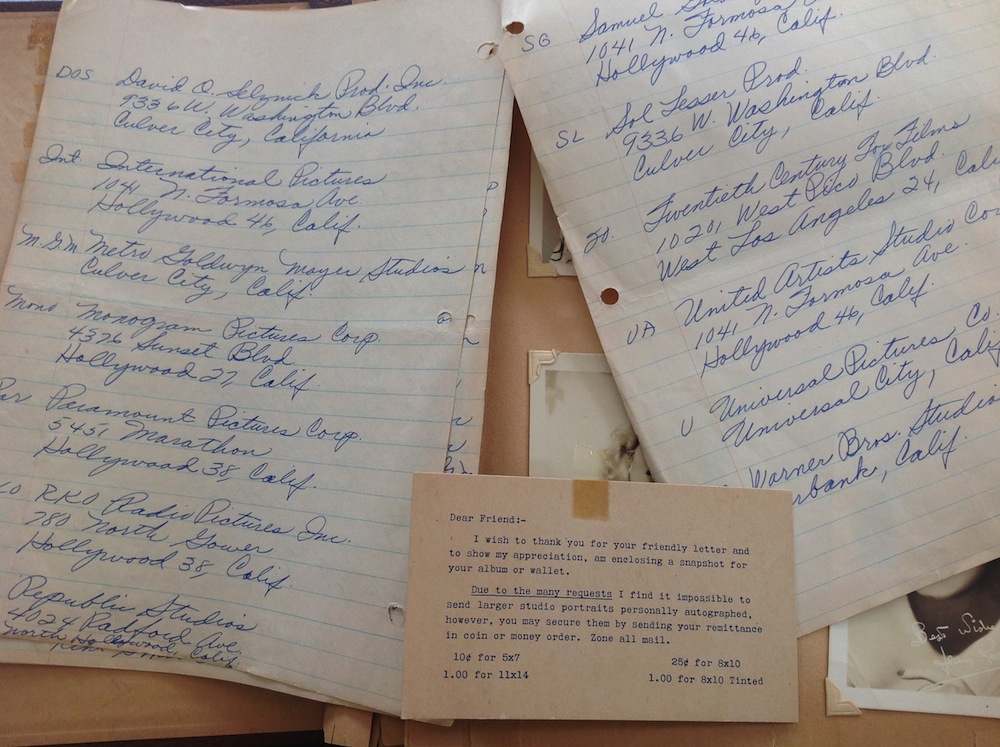 DOS David O. Selznick Prod. Inc.
9336 W. Washington Blvd.
Culver City, California
Int. International Pictures
1041 N. Formosa Ave
Hollywood 46, Calif.
M.G.M Metro Goldwyn Mayer Studios
Culver City, Calif.
Mono Monogram Pictures Corp.
4376 Sunset Blvd
Hollywood 27, Calif.
Par Paramount Pictures Corp.
5451 Marathon
Hollywood 38, Calif.
RKO Radio Pictures Inc.
780 North Gower
Hollywood 38, Calif
Republic Studios
4024 Radford Ave
North Hollywood, Calif.
SG Samuel
1041 N. Formosa
Hollywood 46, Calif.
SL Sol Lesser Prod.
9336 W. Washington Blvd.
Culver City, Calif.
20. Twentieth Century Fox Films
10201 West Pico Blvd.
West Los Angeles 24, Cali
UA United Artists Studio Cor
1041 N. Formosa Ave.
Hollywood 46, Calif.
U Universal Pictures Co.
Universal City, Calif
Warner Bros. Studios
rbank, Calif.
Dear Friend:-
I wish to thank you for your friendly letter and
to show my appreciation, am enclosing a snapshot for
your album or wallet.
Due to the many requests I find it impossible to
send larger studio portraits personally autographed,
however, you may secure them by sending your remittance
in coin or money order. Zone all mail.
10¢ for 5x7 25¢ for 8x10
1.00 for 11x14 1.00 for 8x10 Tinted
Best Wishe